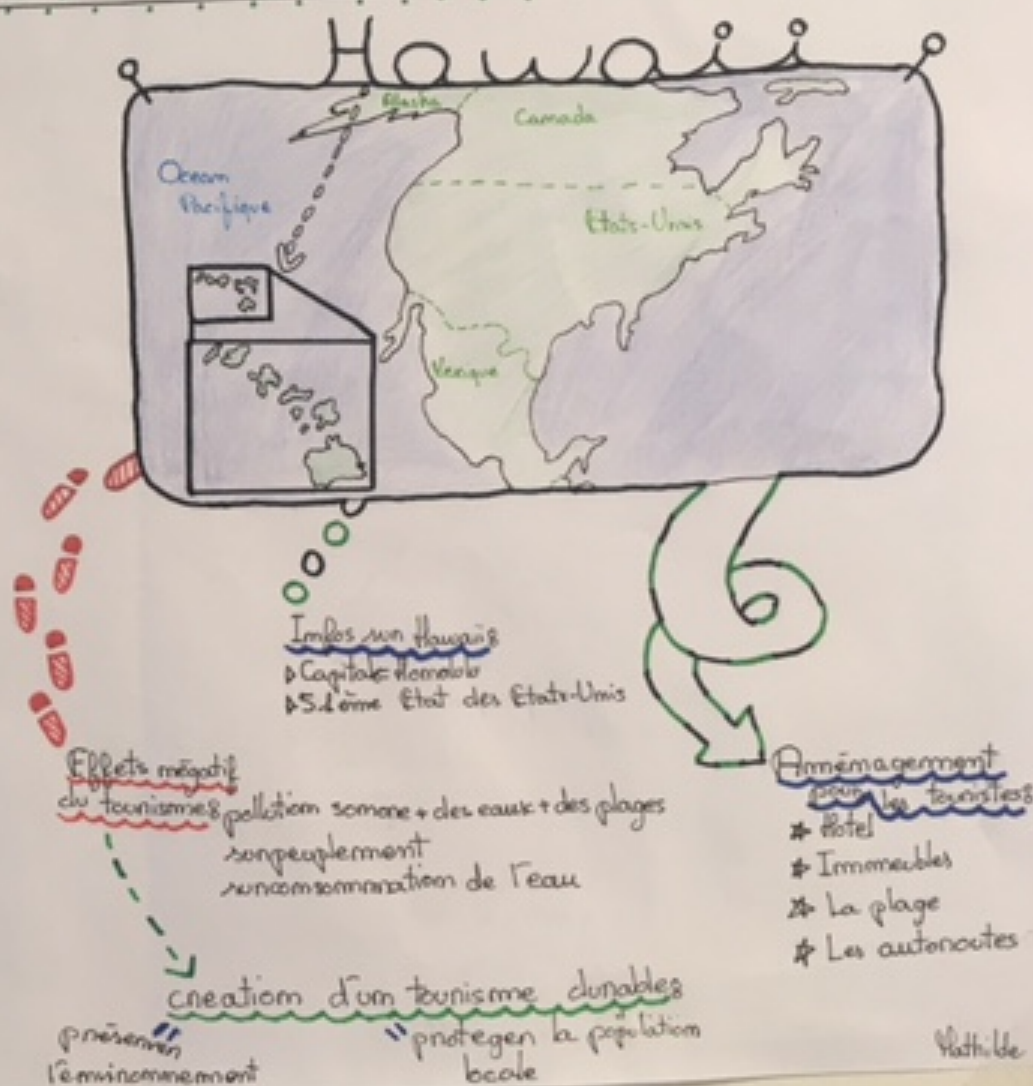 Hawaii
Alaska
Canada
Océan
Pacifique
Etats-Unis
Mexique
Infos sur Hawaii:
Capitale: Honolulu
51ème Etat des Etats-Unis
Effets négatif
du tourisme: pollution sonore + des eaux + des plages
surpeuplement
surconsommation de l'eau
Amménagement
pour les touristes:
Hotel
Immeubles
La plage
Les autoroutes
création d'un tourisme durable:
préserver
l'environnement
protéger la population
locale
Mathilde